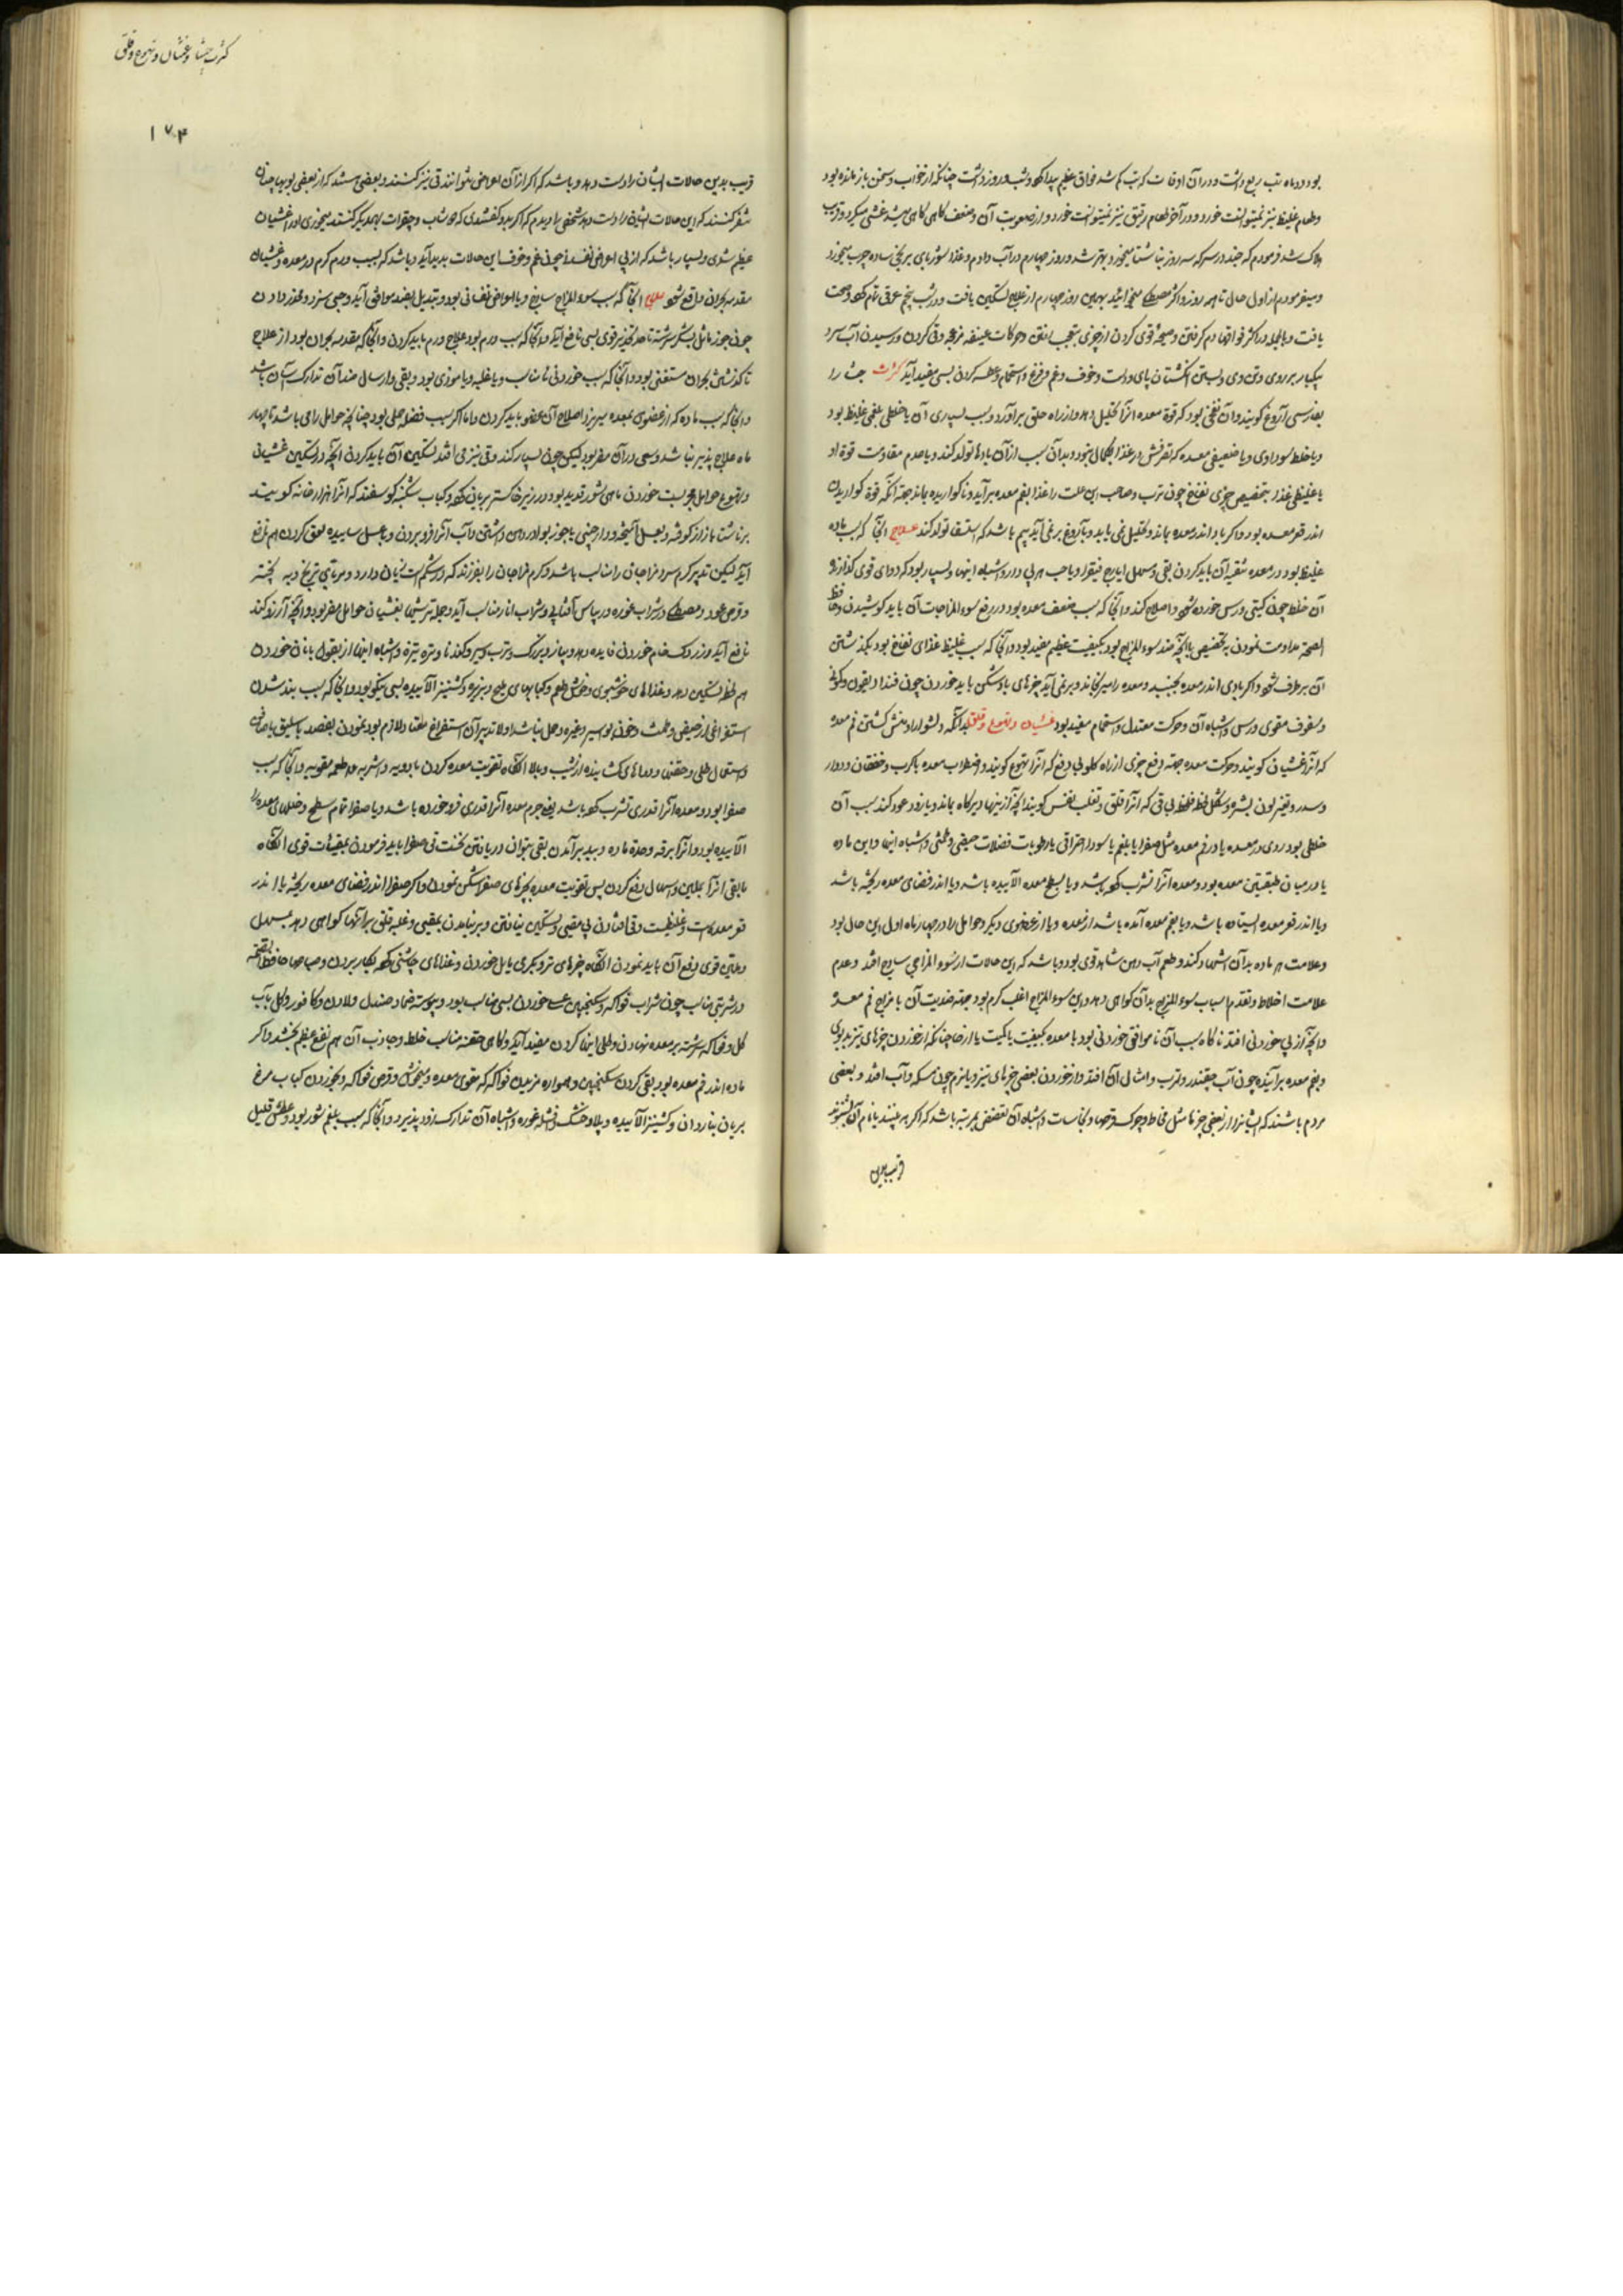 کثرت جشا و غثیان و تهوع و قلق
۱۷۴
بود دو ماه تب ربع داشت و در آن اوقات که تب کم شد فواق عظیم پیدا کرد و شب و روز داشت چنانکه از خواب و سخن باز مانده بود
و طعام غلیظ نیز نمیتوانست خورد و در آخر طعام رقیق نیز نمیتوانست خورد و از صعوبت آن و ضعف گاهی گاهی غشی میکرد و قریب
هلاک شد فرمودم که چند در سرکه سه روز ناشتا میخورد بهتر شد و روز چهارم در آب دادم و غذا شوربای برنج ساده چرب میخورد
و میفرمودم از اول حال تا هر روز واکثر مصطکی میخائید بهمین روز چهارم از علاج تسکین یافت و در شب پنجم عرقی تمام کرد و صحت
یافت و بالجمله در اکثر فواقها دم گرفتن و صیحه قوی کردن از چیزی بتعجب افتادن و حرکات عنیفه و قی کردن و رسیدن آب سرد
بیکبار بر روی و تن وی و بستن انگشتان پای و دست و خوف و غم و فزع و استحمام و عطسه کردن بسی مفید آید کثرت جشا را
بفارسی آروغ گویند و آن نفخی بود که قوة معده آنرا تحلیل دهد و از راه حلق برآورد و سبب بسیاری آن یا خلطی بلغمی غلیظ بود
و یا خلط سوداوی و یا ضعیفی معده که تصرفش در غذا بکمال نبود و بدان سبب از آن بادها تولد کند و یا عدم مقاومت قوة او
یا غلیظی غذا بتخصیص چیزی نفاخ چون ترب و صاحب این علت را غذا بفم معده برآید و ناگواریده بماند جهة آنکه قوة گواریدن
اندر قعر معده بود و اگر باد اندر معده بماند و تحلیل نمی یابد و بآروغ بر نمی آید بیم باشد که استسقا تولد کند علاج آنجا که سبب ماده
غلیظ بود در معده تنقیه آن باید کردن بقی و مسهل ایارج فیقرا و یا حب و اشباه اینها و بسیار بود که دوای قوی گدازنده
آن خلط چون کبتی و رس خورده شود و اصلاح کند و آنجا که سبب ضعف معده بود در رفع سوء المزاجات آن باید کوشیدن و حافظ
الصحة مداومت نمودن بتخصیص باآنچه ضد سوء المزاج بود بکیفیت عظیم مفید بود و آنجا که سبب غلیظ غذای نفاخ بود بگذشتن
آن برطرف شود و اگر بادی اندر معده بجنبد و معده را میرنجاند و بر نمی آید چیزهای بادشکن باید خوردن چون فندادیقون و کمونی
و سفوف مقوی و رس و اشباه آن و حرکت معتدل و استحمام مفید بود غثیان و تهوع و قلق بدانکه دلشوار او منش گشتن فم معده
که آنرا غثیان گویند و حرکت معده جهة دفع چیزی از راه گلو بی دفع که آنرا تهوع گویند و اضطراب معده با کرب و خفقان و دوار
و سدر و تغیر لون بشره و شکل لحظه لحظه بی قی که آنرا قلق و تقلب نفس گویند آنچه از اینها دیرگاه بماند و یا زود عود کند سبب آن
خلطی بود ردی در معده یا در فم معده مثل صفرا یا بلغم یا سودا احتراقی یا رطوبات فضلات حیضی و طمثی و اشباه اینها و این ماده
یا در میان طبقتین معده بود و معده آنرا تشرب کرده باشد و یا بسطح معده آلاییده باشد و یا اندر فضای معده ریخته باشد
و یا اندر قعر معده ایستاده باشد و یا بفم معده آمده باشد از معده و یا از عضوی دیگر و حوامل را در چهار ماه اول این حال بود
و علامت هر ماده بدان استشهاد کند و طعم آب دهن شاهد قوی بود و باشد که این حالات از سوء المزاجی ساذج افتد و عدم
علامت اخلاط و تقدم اسباب سوء المزاج بدان گواهی دهد و این سوء المزاج اغلب گرم بود جهة ضدیت آن با مزاج فم معده
و آنچه از پی خوردنی افتد ناگاه سبب آن ناموافقی خوردنی بود با معده بکیفیت یا بکمیت یا ارخا چنانکه از خوردن چیزهای تیز بدبوی
و بفم معده برآینده چون آب چغندر و ترب و امثال آن افتد و از خوردن بعضی چیزهای تیز و یا نرم چون مسکه و آب افتد و بعضی
مردم باشند که ایشانرا از بعضی چیزها مثل مخاط و چرک و قرحها و نجاسات و اشباه آن تقضض بمرتبه باشد که اگر به بینند یا نام آن بشنوند
قریب بدین
قریب بدین حالات ایشان را دست دهد و باشد که اگر از آن اعراض نتوانند قی نیز کنند و بعضی هستند که از بعضی بویها چنان
متنفر کنند که این حالات ایشان را دست دهد شخصی را دیدم که اگر بدو گفتندی که جو شاب و حقرات بهم دیگر گفتند میخوری او را غثیان
عظیم شدی و بسیار باشد که از پی اعراض نفسانی چون غم و خوف این حالات پدید آید و باشد که بسبب ورم گرم در معده و غثیان
مقدمه بحران واقع شود علاج آنجا که سبب سوء المزاج ساذج و یا اعراض نفسانی بود و تبدیل بضد موافق آید و حبی سرد و مخدر دادن
چون جوز ماثل بشکر سرشته تا حد تخدیر قوی بسی نافع آید و آنجا که سبب ورم بود علاج ورم باید کردن و آنجا که مقدمه بحران بود از علاج
تا گذشتن بحران مستغنی بود و آنجا که سبب خوردنی نامناسب و یا غلبه و یا موذی بود و بقی و اسهال ضد آن تدارک آن باشد
و آنجا که سبب ماده که از عضوی بمعده میریزد اصلاح آن عضو باید کردن و اما اگر سبب فضله حملی بود چنانچه حوامل را می باشد تا چهار
ماه علاج پذیر نباشد و سعی در آن مضر بود لیکن چون بسیار کند و قی نیز می افتد تسکین آن باید کردن آنچه در تسکین غثیان
و تهوع حوامل مجربست خوردن ماهی شور قدید بود و در زیر خاکستر بریان کرده و کباب شکنبه گوسفند که آنرا هزارخانه گویند
بر ناشتا با رازیانه کوفته و بعسل آمیخته و دارچینی یا جوز بوا در دهن داشتن و آب آنرا فرو بردن و با عسل ساییده لعق کردن هم نافع
آید لیکن تدبیر گرم سرد مزاجان را مناسب باشد و گرم مزاجان را بغرزند که در شکم است زیان دارد و مرباء ترنج و به پخته
و قرص عود و مصطکی و شراب غوره و ریباس آفتابی و شراب انار مناسب آید و جمله ترشیها بغثیان حوامل مضر بود و آنچه آرزو کند
نافع آید و زردک خام خوردن فایده دهد و پیاز و بزرگ و ترب و سیر و گندنا و تره تیزه و اشباه اینها از بقول با نان خوردن
هم لحظه تسکین دهد و غذاهای خوشبوی و خوش طعم و کبابهای ملیح و بزیره و گشنیز آلاییده بسی نیکو بود و آنجا که سبب بند شدن
استفراغی از حیضی و طمث و خون بواسیر و غیره و حمل نباشد اولا تدبیر آن استفراغ معتاد لازم بود نمودن بفصد باسلیق یا صافن
و استعمال طلی و حقنها و دواهای کشاینده از شیب و بالا آنگاه تقویت معده کردن بادویه و اشربه و اطعمه مقویه و آنجا که سبب
صفرا بود و معده آنرا قدری تشرب کرده باشد یعنی جرم معده آنرا قدری فرو خورده باشد و یا صفرا تمام سطح و خملهای معده را
آلاییده بود و آنرا برقه و حدة ماده و بدیر برآمدن بقی بتوان دریافتن نخست قی صفرا باید فرمودن بمقیئات قوی آنگاه
مابقی آنرا بملین و اسهال رفع کردن پس تقویت معده بچیزهای صفراشکن نمودن و اگر صفرا اندر فضای معده ریخته یا اندر
قعر معده است و غلیظست و قی افتادن بی مقیئ و تسکین نیافتن و برنیامدن بمقیئ و غلبه قلق برآنها گواهی دهد بمسهل
و مقیئ قوی رفع آن باید نمودن آنگاه چیزهای تر و بکری مایل خوردن و غذاهای چاشنی کرده بکار بردن و صباحها حافظ الصحه
و شربتی مناسب چون شراب فواکه و سکنجبین خوردن بسی مناسب بود و پیوسته ضماد صندل و لادن و کافور و گل بآب
گل و فواکه سرشته بر معده نهادن و طلی اینها کردن مفید آید و گاهی حقنه مناسب خلط و جاذب آن هم نفع عظیم بخشد و اگر
ماده اندر فم معده بود بقی کردن سکنجبین و همواره مزیدن فواکه که مقوی معده و میخوش و قرص فواکه و بخوردن کباب مرغ
بریان بناردان و گشنیز آلاییده و پلاو خشک و قلیه غوره و اشباه آن تدارک زود پذیرد و آنجا که سبب بلغم شور بود و عطش قلیل